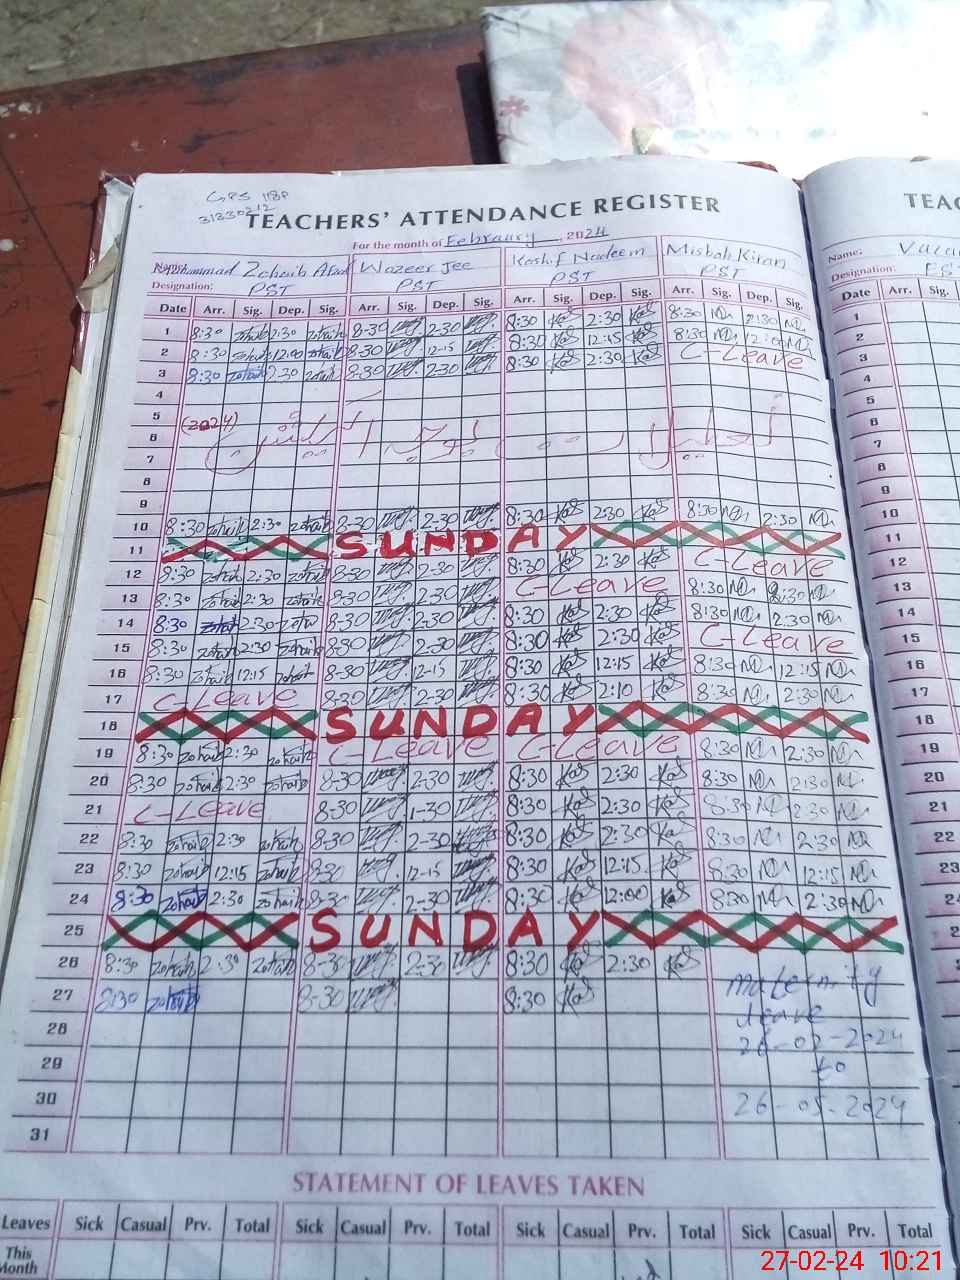 GPS 118P
31330212
TEACHERS' ATTENDANCE REGISTER
TEAC
For the month of Febraury, 2024
Name: Muhammad Zohaib Wazeer Jee Kashif Nadeem Misbah Kiran
Name:
Designation: PST PST PST PST
Designation: PST
Date Arr. Sig. Dep. Sig. Arr. Sig. Dep. Sig. Arr. Sig. Dep. Sig. Arr. Sig. Dep. Sig.
Date Arr. Sig.
1 8:30 zohaib 2:30 zohaib 8-30 2-30 8:30 Kas 2:30 Kas 8:30 2:30
2 8:30 zohaib 12:00 zohaib 8-30 12-15 8:30 Kas 12:45 Kas 8:30 12:00
3 8:30 zohaib 2:30 zohaib 8-30 2-30 8:30 Kas 2:30 Kas C-Leave
4
5 (2024)
6
7
8
9
10 8:30 zohaib 2:30 zohaib 8-30 2-30 8:30 Kas 2:30 Kas 8:30 2:30
11 SUNDAY
12 8:30 zohaib 2:30 zohaib 8-30 2-30 8:30 Kas 2:30 Kas C-Leave
13 8:30 zohaib 2:30 zohaib 8-30 2-30 C-Leave 8:30 2:30
14 8:30 zohaib 2:30 8-30 2-30 8:30 Kas 2:30 Kas 8:30 2:30
15 8:30 zohaib 2:30 zohaib 8-30 2-30 8:30 Kas 2:30 Kas C-Leave
16 8:30 zohaib 12:15 zohaib 8-30 12-15 8:30 Kas 12:15 Kas 8:30 12:15
17 C-Leave 8-30 2-30 8:30 Kas 2:10 Kas 8:30 2:30
18 SUNDAY
19 8:30 zohaib 2:30 zohaib C-Leave C-Leave 8:30 2:30
20 8:30 zohaib 2:30 zohaib 8-30 2-30 8:30 Kas 2:30 Kas 8:30 2:30
21 C-Leave 8-30 1-30 8:30 Kas 2:30 Kas 8:30 2:30
22 8:30 zohaib 2:30 zohaib 8-30 2-30 8:30 Kas 2:30 Kas 8:30 2:30
23 8:30 zohaib 12:15 zohaib 8-30 12-15 8:30 Kas 12:15 Kas 8:30 12:15
24 8:30 zohaib 2:30 zohaib 8-30 2-30 8:30 Kas 12:00 Kas 8:30 2:30
25 SUNDAY
26 8:30 zohaib 2:30 zohaib 8-30 2-30 8:30 Kas 2:30 Kas
27 8:30 zohaib 8-30 8:30 Kas maternity
28 leave
26-02-2024
29 to
30 26-05-2024
31
1
2
3
4
5
6
7
8
9
10
11
12
13
14
15
16
17
18
19
20
21
22
23
STATEMENT OF LEAVES TAKEN
Leaves Sick Casual Prv. Total Sick Casual Prv. Total Sick Casual Prv. Total Sick Casual Prv. Total
This
Month
27-02-24 10:21